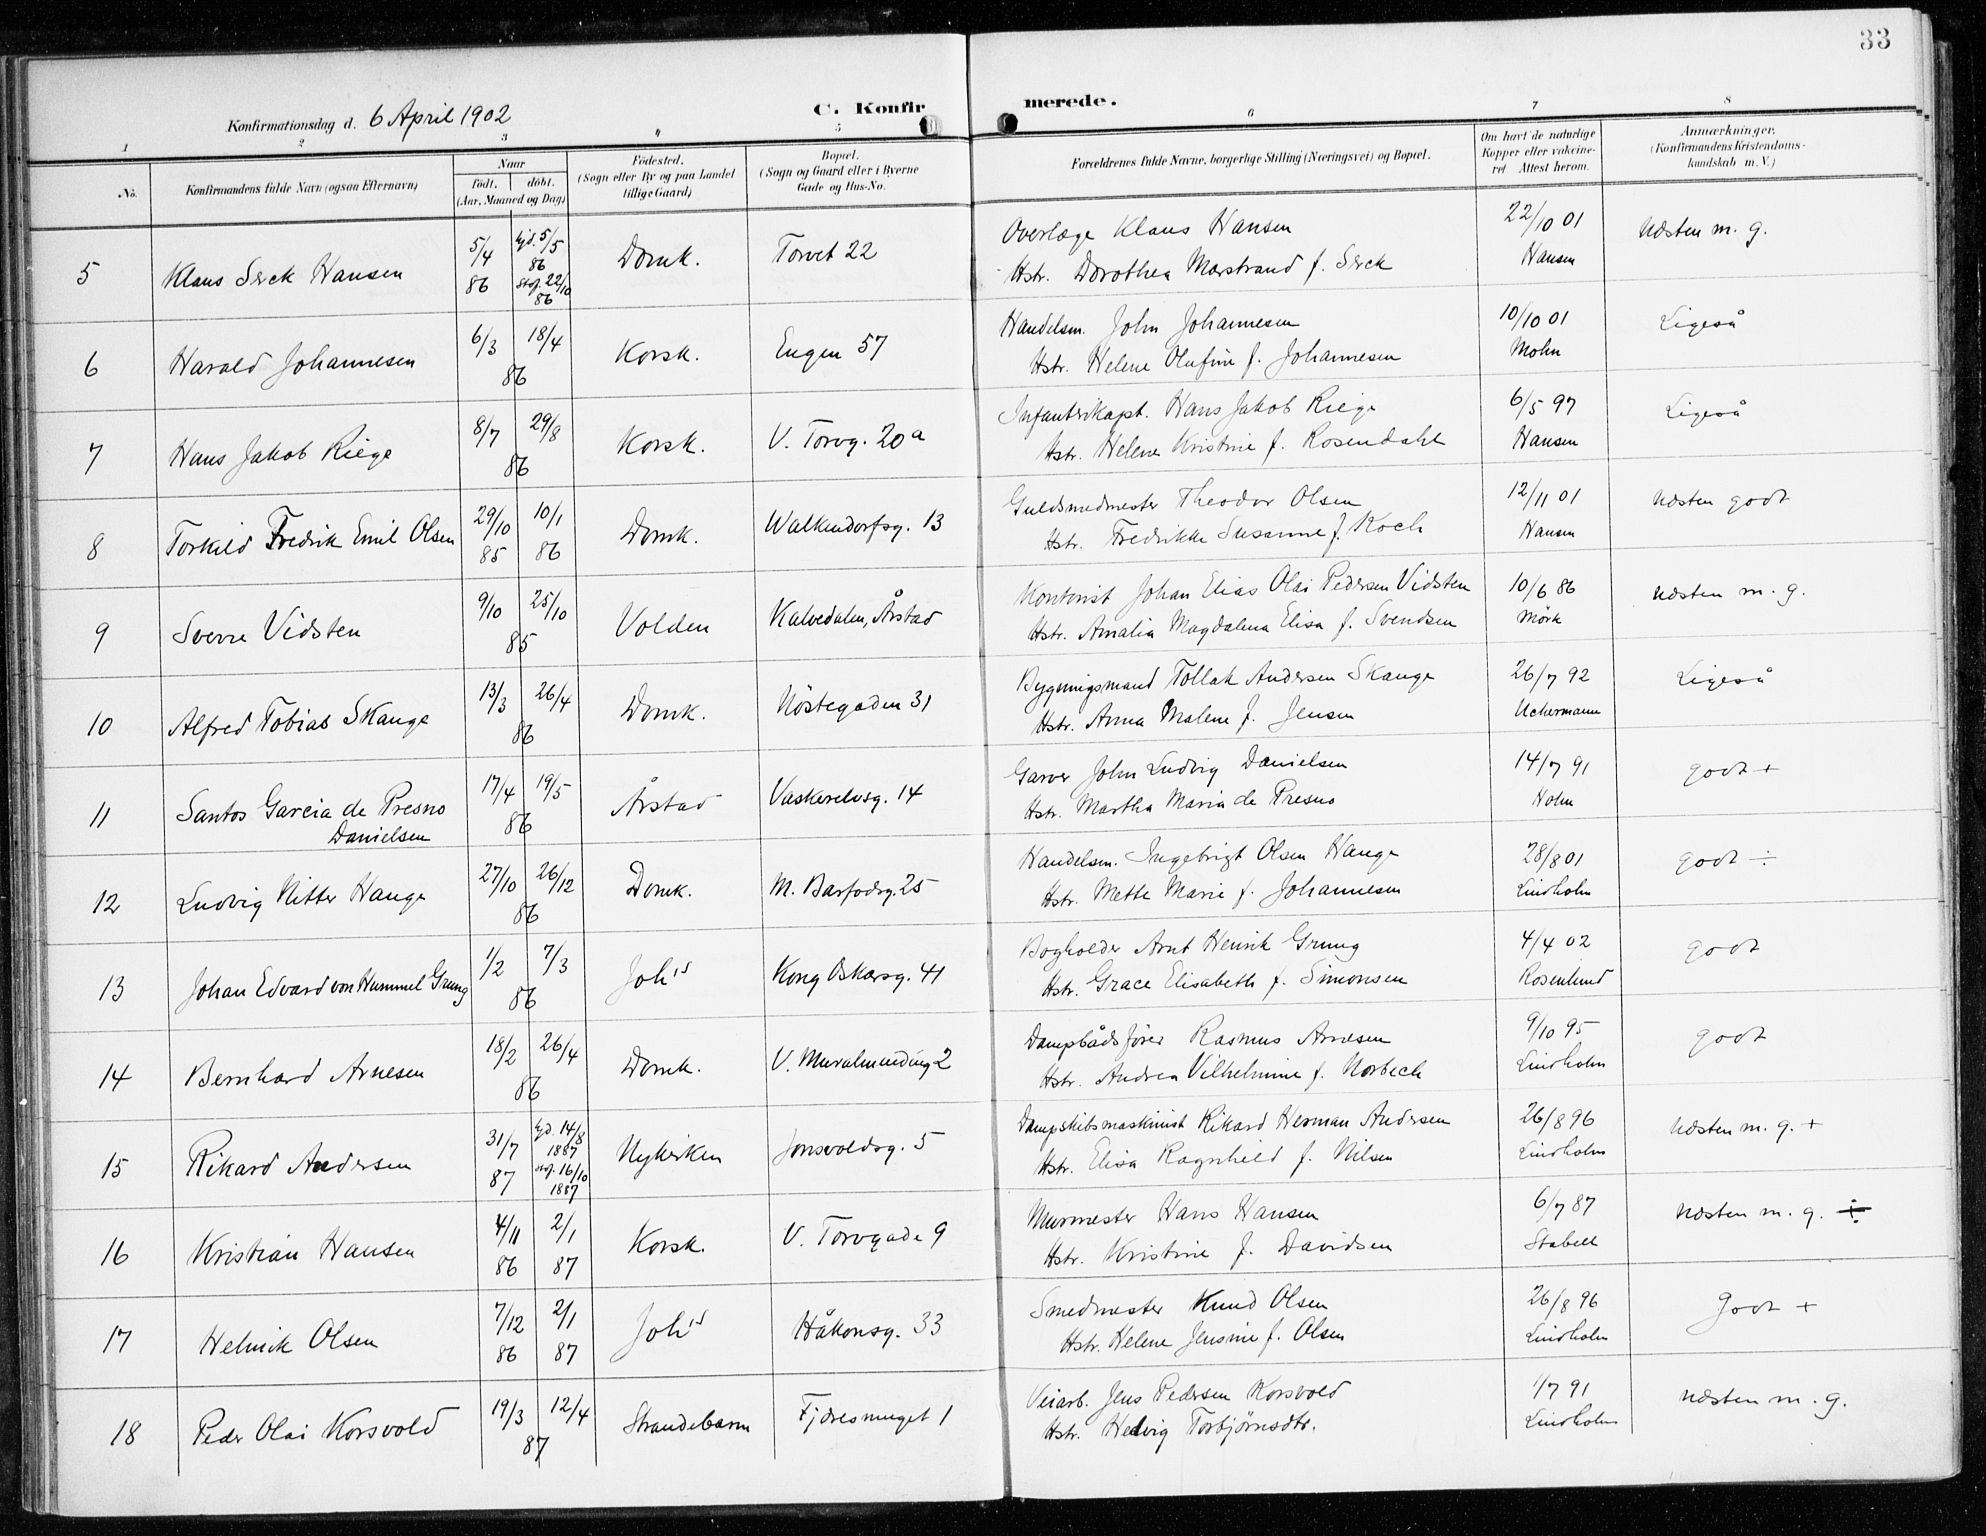 33
Konfirmationsdag d. 6 April 1902
C. Konfirmerede.
1 2 3 4 5 6 7 8
No.
Konfirmandens fulde Navn (ogsaa Efternavn)
Naar
født. døbt.
(Aar, Maaned og Dag)
Fødested.
(Sogn eller By og paa Landet
tillige Gaard)
Bopæl.
(Sogn og Gaard eller i Byerne
Gade og Hus-No.
Forældrenes fulde Navne, borgerlige Stilling (Næringsvei) og Bopæl.
Om havt de naturlige
Kopper eller vakcine-
ret. Attest herom.
Anmærkninger.
(Konfirmandens Kristendoms-
kundskab m. V.)
5 Klaus Serck Hansen 5/4 86 hjd. 5/5 86 stsf. 22/10 86 Domk. Torvet 22
Overlæge Klaus Hansen 22/10 01 Næsten m. g.
Hstr. Dorothea Marstrand f. Serck Hansen
6 Harald Johannesen 6/3 18/4 86 Korsk. Engen 57
Handelsm. John Johannesen 10/10 01 Ligeså
Hstr. Helene Olufine f. Johannesen Mohn
7 Hans Jakob Riege 8/7 29/8 86 Korsk. V. Torvg. 20a
Infanterikapt. Hans Jakob Riege 6/5 97 Ligeså
Hstr. Helene Kristine f. Rosendahl Hansen
8 Torkild Fredrik Emil Olsen 29/10 85 10/1 86 Domk. Walkendorfsg. 13
Guldsmedmester Theodor Olsen 12/11 01 Næsten godt
Hstr. Fredrikke Susanne f. Koch Hansen
9 Sverre Vidsten 9/10 25/10 85 Volden Kalvedalen, Årstad
Kontorist Johan Elias Olai Pedersen Vidsten 10/6 86 Næsten m. g.
Hstr. Amalia Magdalena Elisa f. Svendsen Mörk
10 Alfred Tobias Skauge 13/3 26/4 86 Domk. Nöstegaden 31
Bygningsmand Tollak Andersen Skauge 26/7 92 Ligeså
Hstr. Anna Malene f. Jensen Uchermann
11 Santos Garcia de Presno 17/4 19/5 86 Årstad Vaskerelvsg. 14
Danielsen
Garver John Ludvig Danielsen 14/7 91 godt +
Hstr. Martha Maria de Presno Holm
12 Ludvig Nitter Hauge 27/10 26/12 86 Domk. M. Barfodsg. 25
Handelsm. Ingebrigt Olsen Hauge 28/8 01 godt ÷
Hstr. Mette Marie f. Johannesen Lindholm
13 Johan Edvard von Hummel Grung 1/2 7/3 86 Johs Kong Oskarsg. 41
Bogholder Arnt Henrik Grung 4/4 02 godt
Hstr. Grace Elisabeth f. Simonsen Rosenlund
14 Bernhard Arnesen 18/2 26/4 86 Domk. V. Muralmending 2
Dampbådsfører Rasmus Arnesen 9/10 95 godt
Hstr. Andrea Vilhelmine f. Norbech Lindholm
15 Rikard Andersen 31/7 87 hjd. 14/8 1887 stsf. 16/10 1887 Nykirken Jonsvoldsg. 5
Dampskibsmaskinist Rikard Herman Andersen 26/8 96 Næsten m. g. +
Hstr. Elisa Ragnhild f. Nilsen Lindholm
16 Kristian Hansen 4/11 86 2/1 87 Korsk. V. Torvgade 9
Murmester Hans Hansen 6/7 87 Næsten m. g.
Hstr. Kristine f. Davidsen Stabell
17 Helmik Olsen 7/12 86 2/1 87 Johs Håkonsg. 33
Smedmester Knud Olsen 26/8 96 Godt +
Hstr. Helene Jensine f. Olsen Lindholm
18 Peder Olai Korsvold 19/3 12/4 87 Strandebarm Fjæresmuget 1
Veiarb. Jens Pedersen Korsvold 1/7 91 Næsten m. g.
Hstr. Hedvig Torbjørnsdtr. Lindholm